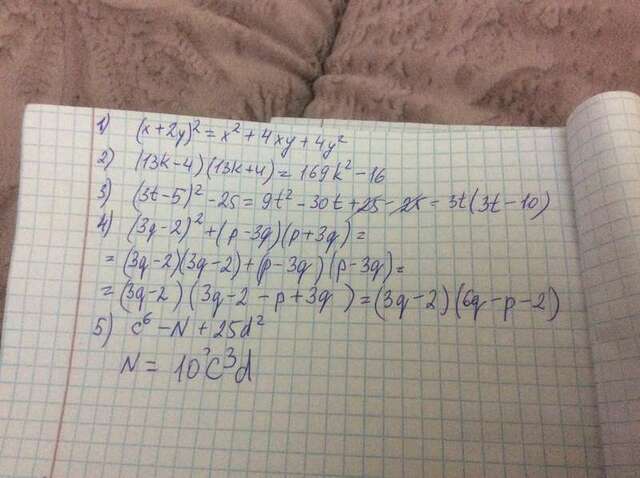 1) (x+2y)² = x² + 4xy + 4y²
2) (13k-4)(13k+4) = 169k² - 16
3) (3t-5)² - 25 = 9t² - 30t + 25 - 25 = 3t(3t-10)
4) (3q-2)² + (p-3q)(p+3q) =
= (3q-2)(3q-2) + (p-3q)(p-3q) =
= (3q-2)(3q-2-p+3q) = (3q-2)(6q-p-2)
5) c⁶ - N + 25d²
N = 10c³d